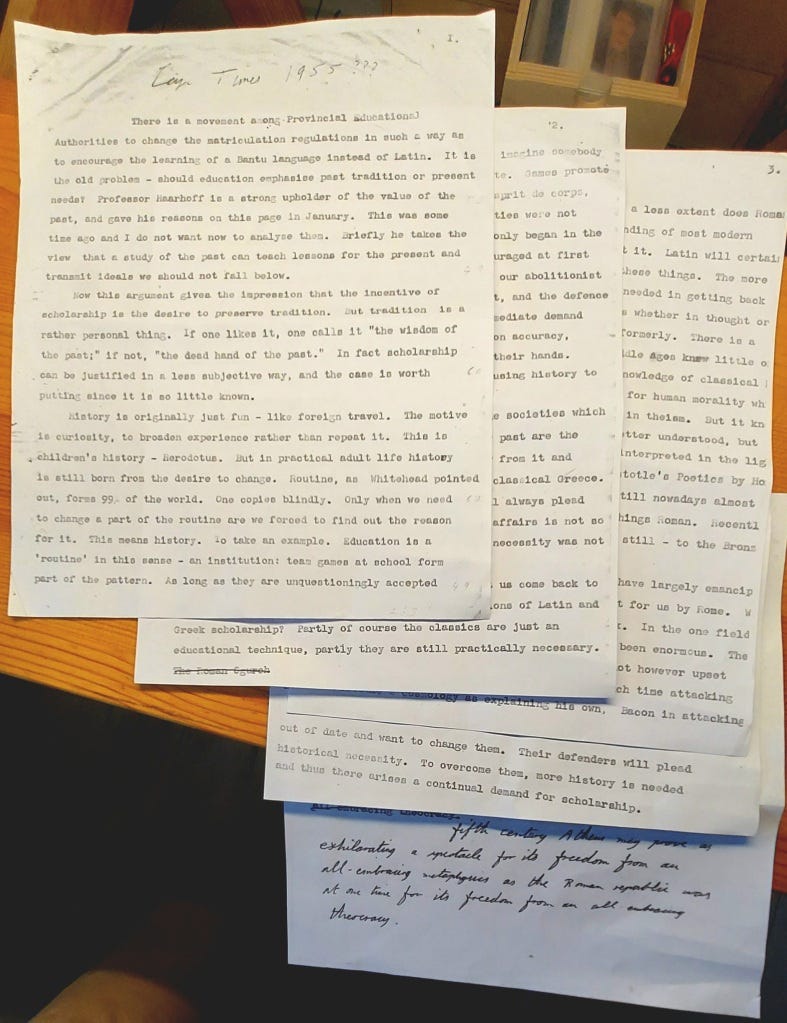 1.
Times 1955 ???
There is a movement among Provincial Educational
Authorities to change the matriculation regulations in such a way as
to encourage the learning of a Bantu language instead of Latin. It is
the old problem - should education emphasise past tradition or present
needs? Professor Haarhoff is a strong upholder of the value of the
past, and gave his reasons on this page in January. This was some
time ago and I do not want now to analyse them. Briefly he takes the
view that a study of the past can teach lessons for the present and
transmit ideals we should not fall below.
Now this argument gives the impression that the incentive of
scholarship is the desire to preserve tradition. But tradition is a
rather personal thing. If one likes it, one calls it "the wisdom of
the past;" if not, "the dead hand of the past." In fact scholarship
can be justified in a less subjective way, and the case is worth
putting since it is so little known.
History is originally just fun - like foreign travel. The motive
is curiosity, to broaden experience rather than repeat it. This is
children's history - Herodotus. But in practical adult life history
is still born from the desire to change. Routine, as Whitehead pointed
out, forms 99 of the world. One copies blindly. Only when we need
to change a part of the routine are we forced to find out the reason
for it. This means history. To take an example. Education is a
'routine' in this sense - an institution: team games at school form
part of the pattern. As long as they are unquestioningly accepted
2.
imagine somebody
te. Games promote
sprit de corps,
ties were not
only began in the
uraged at first
our abolitionist
t, and the defence
mediate demand
on accuracy,
their hands.
using history to
e societies which
past are the
from it and
classical Greece.
l always plead
affairs is not so
necessity was not
us come back to
ons of Latin and
Greek scholarship? Partly of course the classics are just an
educational technique, partly they are still practically necessary.
The Roman Cgurch
3.
a less extent does Roma
nding of most modern
t it. Latin will certai
these things. The more
needed in getting back
s whether in thought or
formerly. There is a
dle Ages knew little o
nowledge of classical
for human morality wh
in theism. But it kn
etter understood, but
interpreted in the lig
totle's Poetics by Ho
till nowadays almost
hings Roman. Recentl
still - to the Bronz
have largely emancip
t for us by Rome. W
. In the one field
been enormous. The
ot however upset
ch time attacking
cosmology as explaining his own, Bacon in attacking
out of date and want to change them. Their defenders will plead
historical necessity. To overcome them, more history is needed
and thus there arises a continual demand for scholarship.
all-embracing theocracy.
fifth century Athens may prove as
exhilarating a spectacle for its freedom from an
all-embracing metaphysics as the Roman republic was
at one time for its freedom from an all embracing
theocracy.